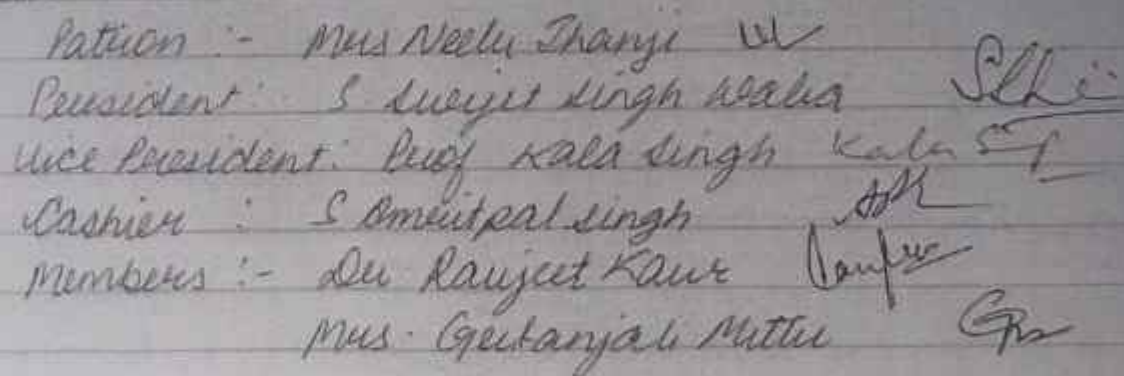 Patron :- Mrs Neelu Jhanji
President : S Surjit Singh Walia
Vice President : Prof Kala Singh Kala
Cashier : S Amritpal Singh
Members :- Dr Ranjeet Kaur
Mrs. Geetanjali Mittu